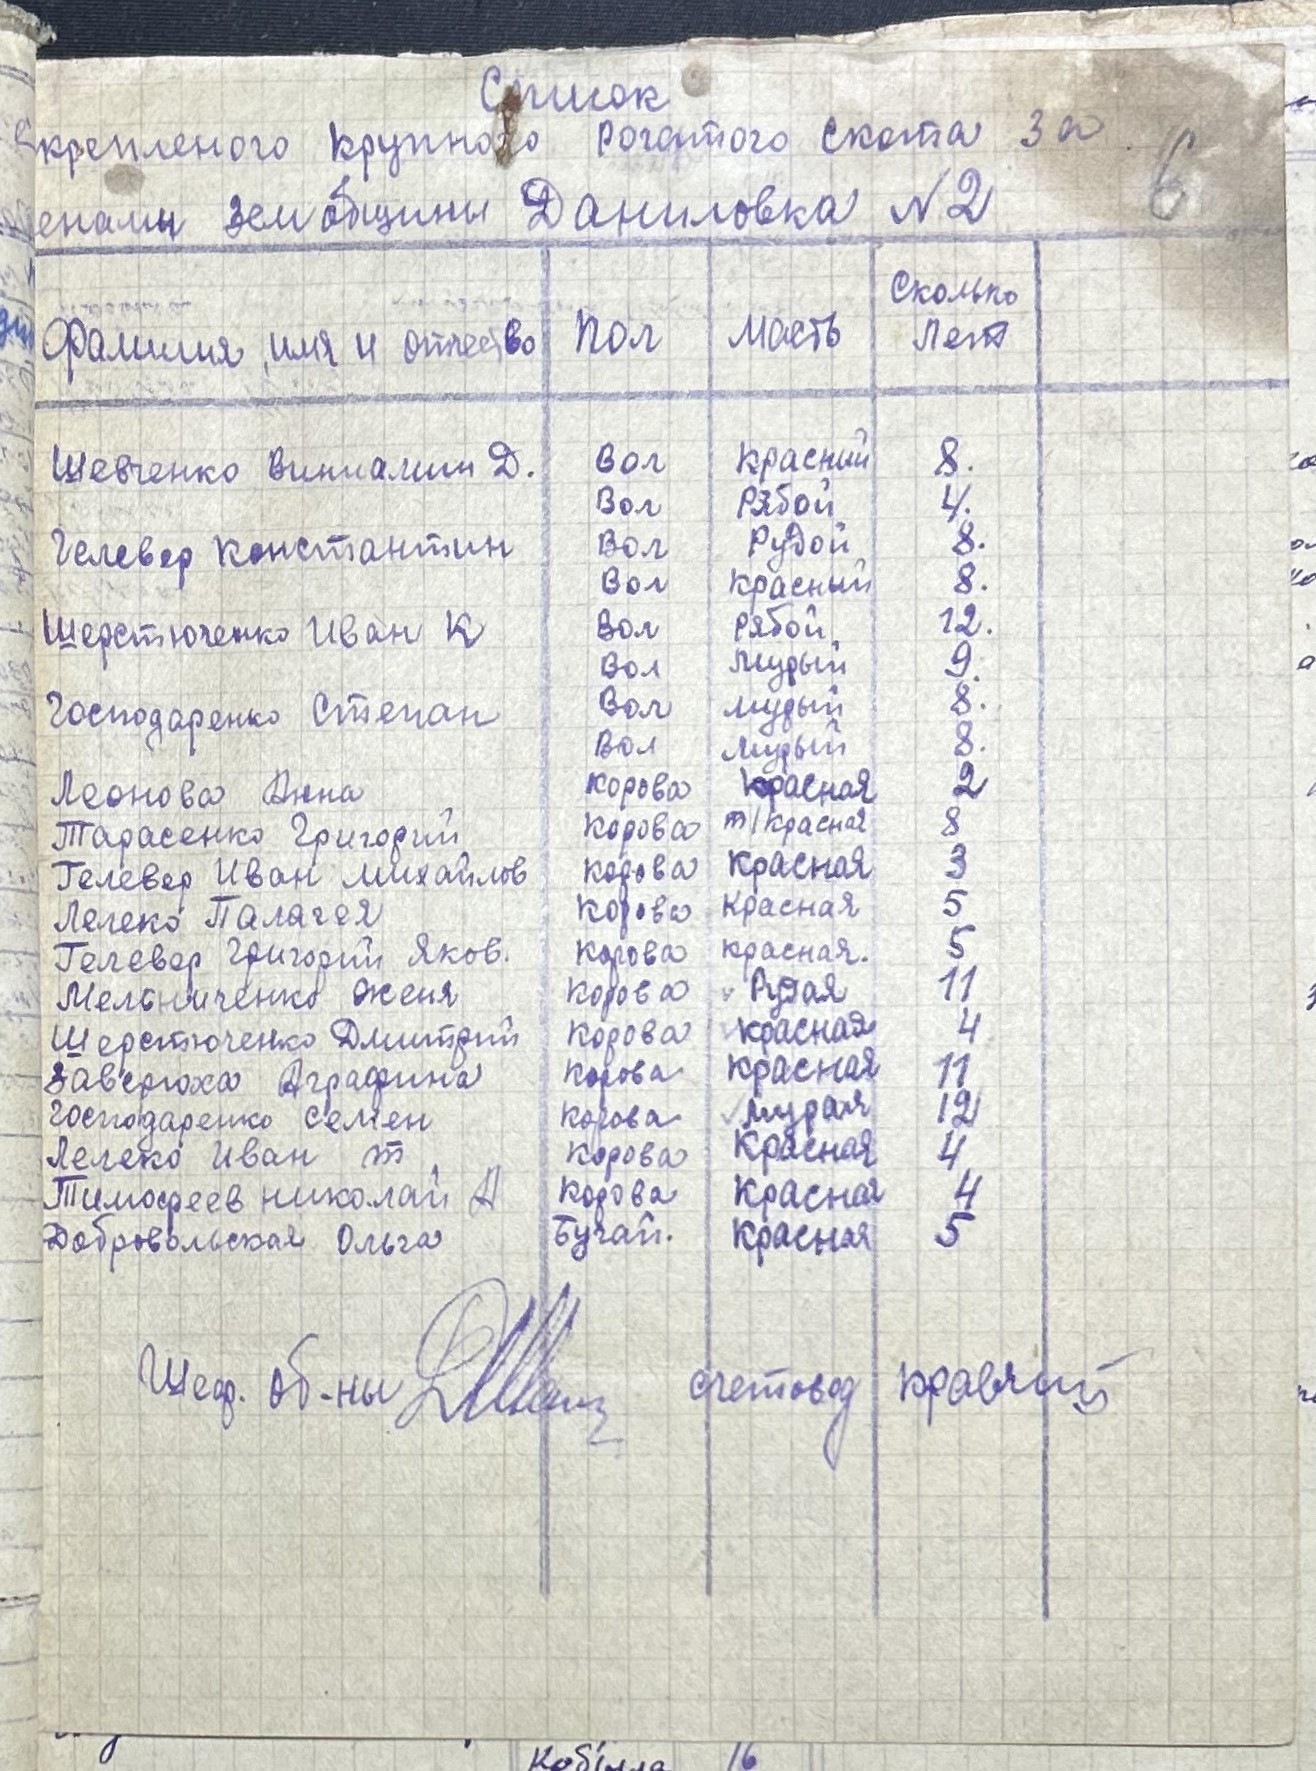 Список
крепленого крупного рогатого скота за
енами зем общины Даниловка N2
6
Фамилия, имя и отчество Пол Масть Сколько Лет
Шевченко Виниамин Д. Вол Красний 8.
Вол Рябой 4.
Гелевер Константин Вол Рудой 8.
Вол Красный 8.
Шерстюченко Иван К Вол Рябой 12.
Вол Мурый 9.
Господаренко Степан Вол Мурый 8.
Вол Мурый 8.
Леонова Анна Корова Красная 2
Тарасенко Григорий Корова т/красная 8
Гелевер Иван Михайлов Корова Красная 3
Лелеко Палагея Корова Красная 5
Гелевер Григорий Яков. Корова красная. 5
Мельниченко Женя Корова Рудая 11
Шерстюченко Дмитрий Корова красная 4
Завєрюха Аграфина Корова красная 11
Господаренко Семен Корова Мурая 12
Лелеко Иван т Корова Красная 4
Тимофеев Николай А Корова Красная 4
Добровольская Ольга Бугай. Красная 5
Шеф. Об-ны счетовод Кравчий
Кобила 16